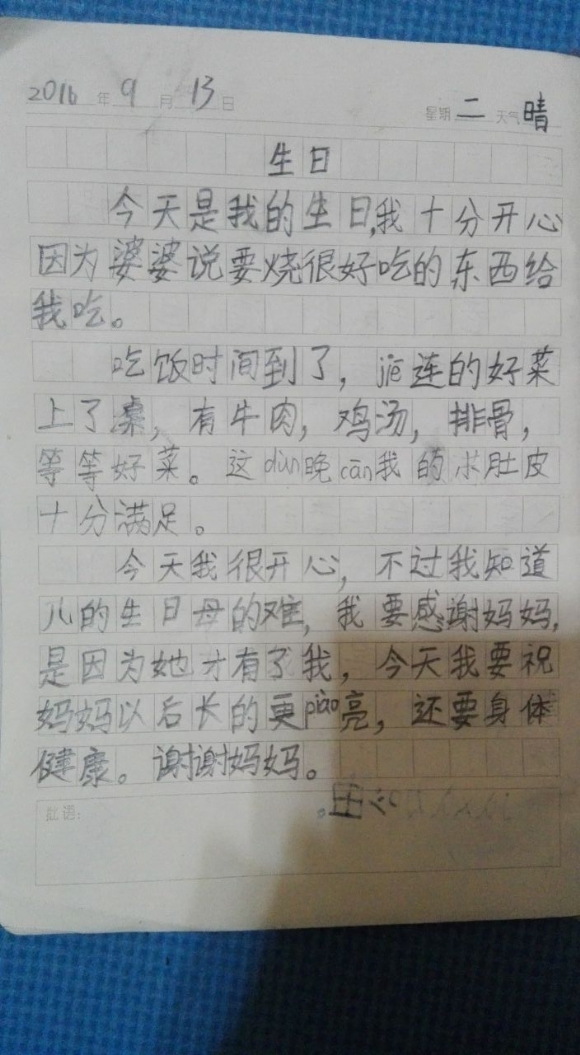 2016年9月13日 星期二天气晴
生日
今天是我的生日,我十分开心
因为婆婆说要烧很好吃的东西给
我吃。
吃饭时间到了，连的好菜
上了桌，有牛肉，鸡汤，排骨，
等等好菜。这dùn晚cān我的小肚皮
十分满足。
今天我很开心，不过我知道
儿的生日母的难，我要感谢妈妈，
是因为她才有了我，今天我要祝
妈妈以后长的更piào亮，还要身体
健康。谢谢妈妈。
批语：